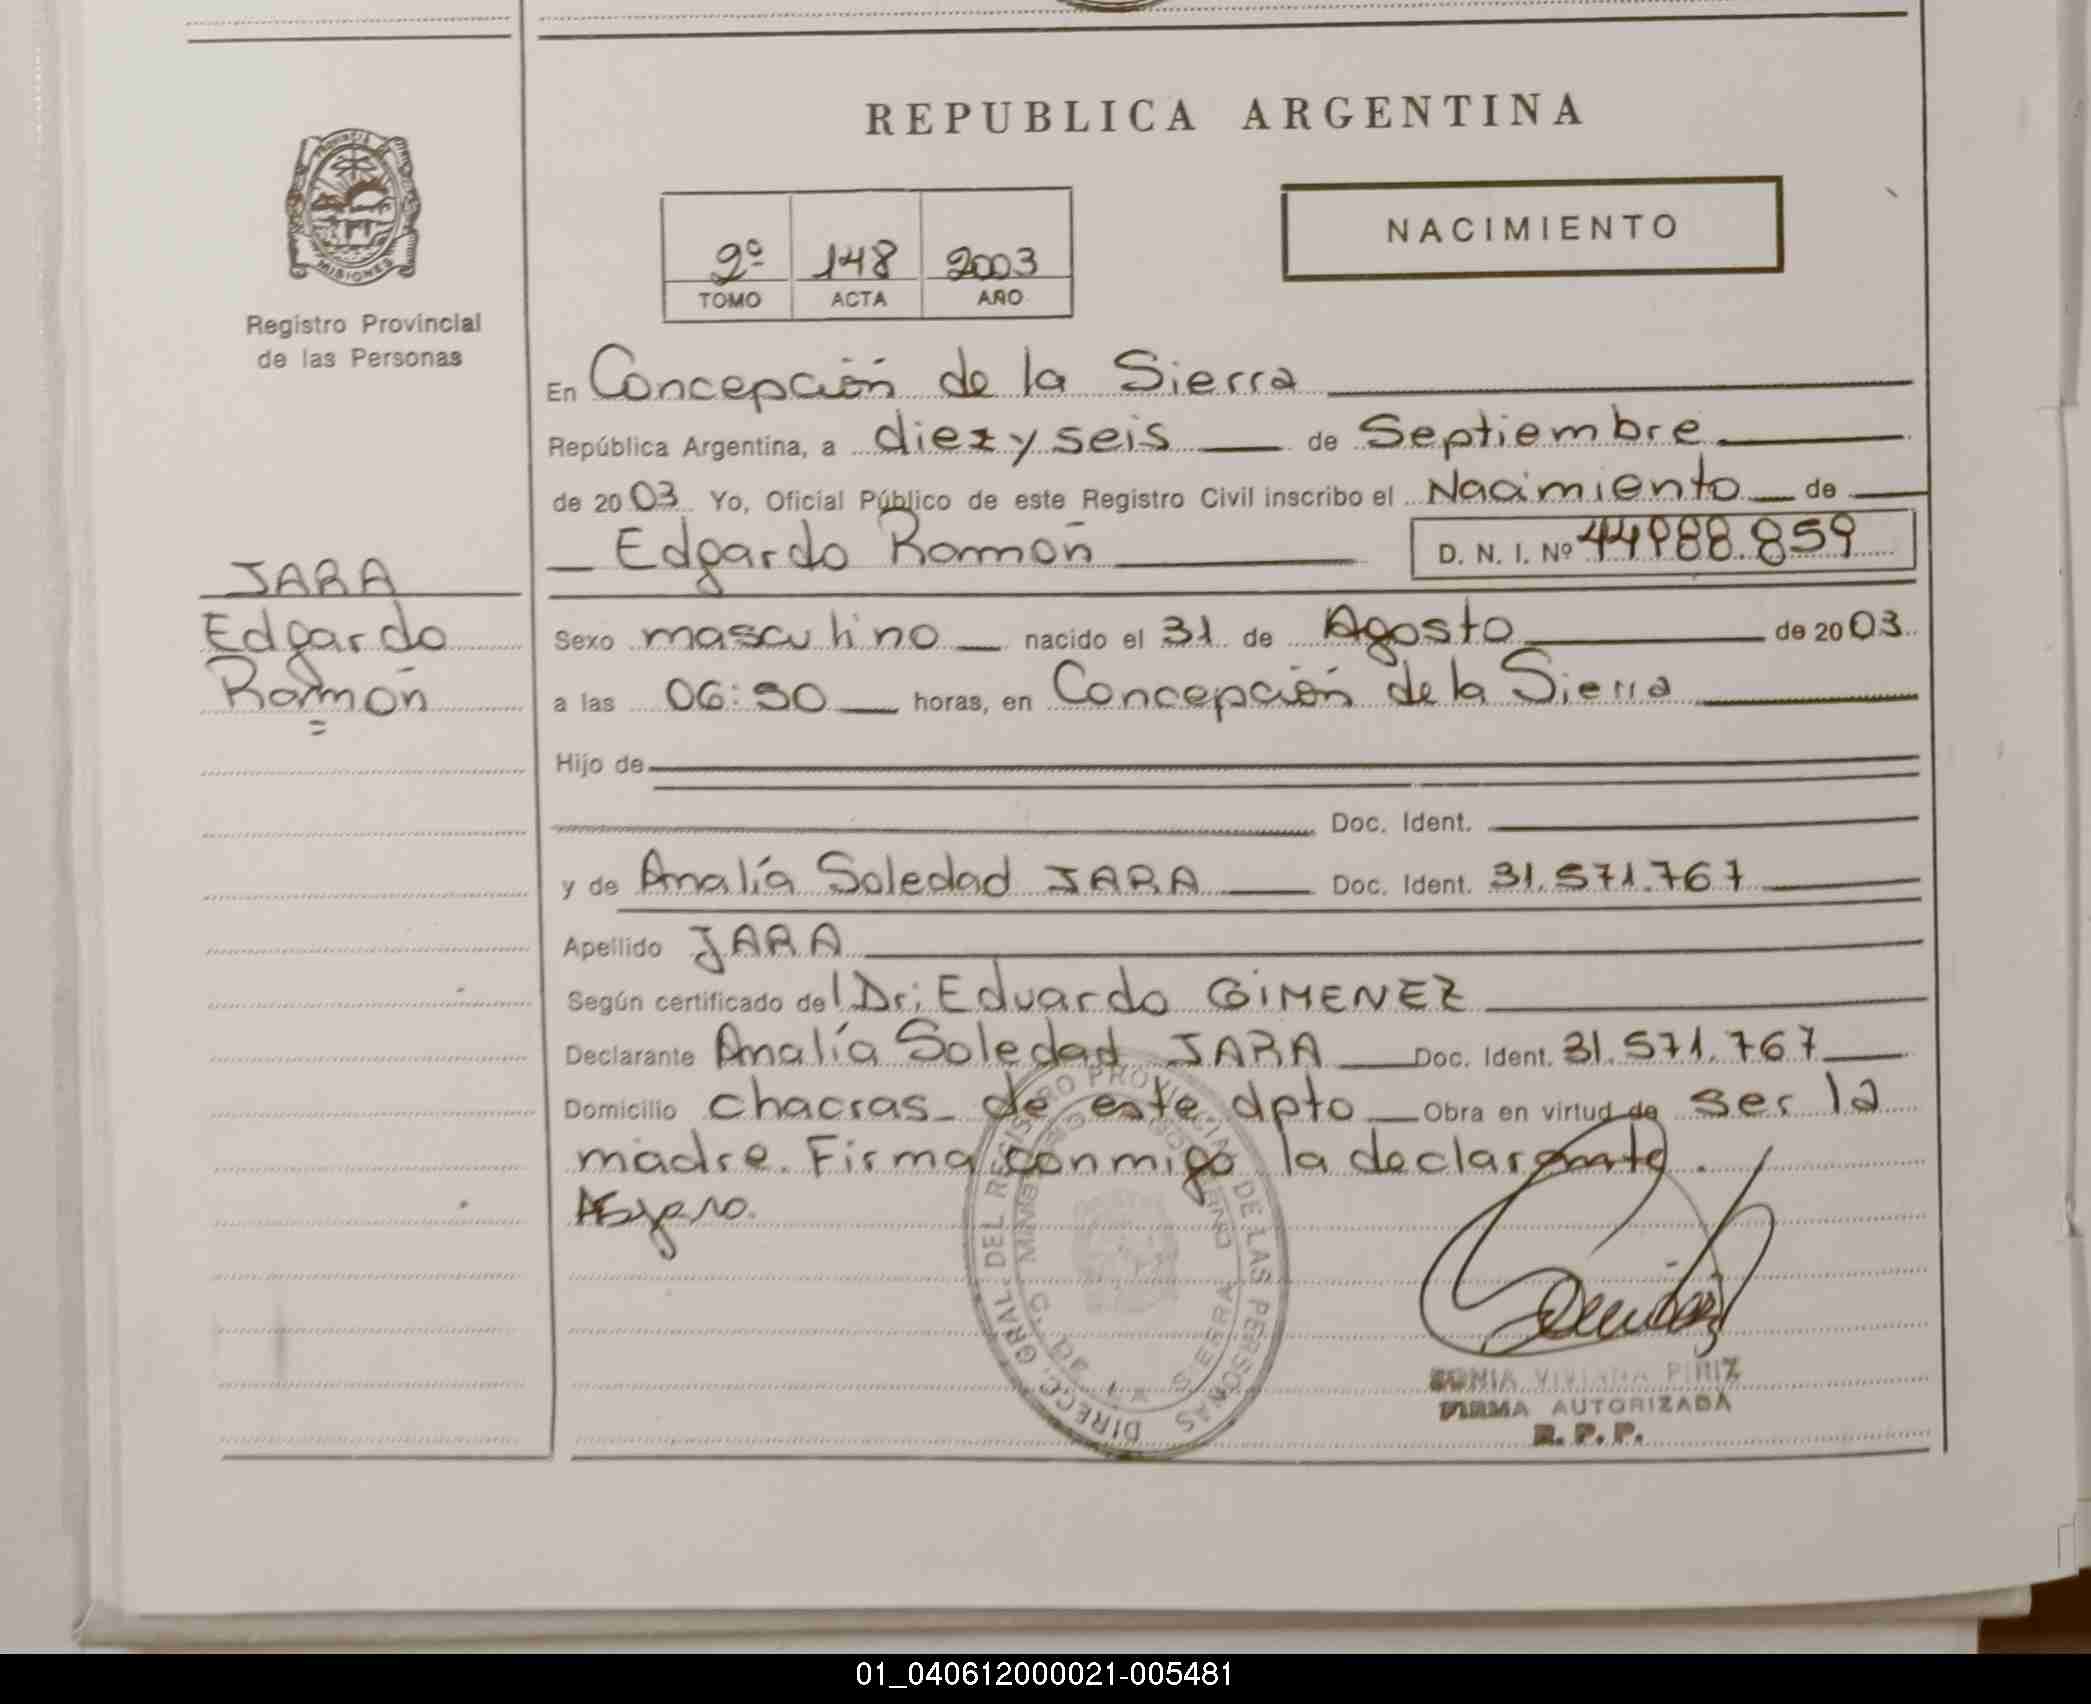 REPUBLICA ARGENTINA
PROVINCIA DE MISIONES
Registro Provincial
de las Personas
2º 148 2003
TOMO ACTA AÑO
NACIMIENTO
En Concepción de la Sierra
República Argentina, a diez y seis de Septiembre
de 2003 Yo, Oficial Público de este Registro Civil inscribo el Nacimiento de
Edgardo Ramón D. N. I. Nº 44988.859
JARA
Edgardo
Ramón
Sexo masculino nacido el 31 de Agosto de 2003
a las 06:30 horas, en Concepción de la Sierra
Hijo de
Doc. Ident.
y de Analía Soledad JARA Doc. Ident. 31.571.767
Apellido JARA
Según certificado del Dr: Eduardo GIMENEZ
Declarante Analía Soledad JARA Doc. Ident. 31.571.767
Domicilio chacras de este dpto Obra en virtud de ser la
madre. Firma conmigo la declarante.
DIRECC. GRAL. DEL REGISTRO PROVINCIAL DE LAS PERSONAS
SIERRA
SONIA VIVIANA PIRIZ
FIRMA AUTORIZADA
R. P. P.
01_040612000021-005481